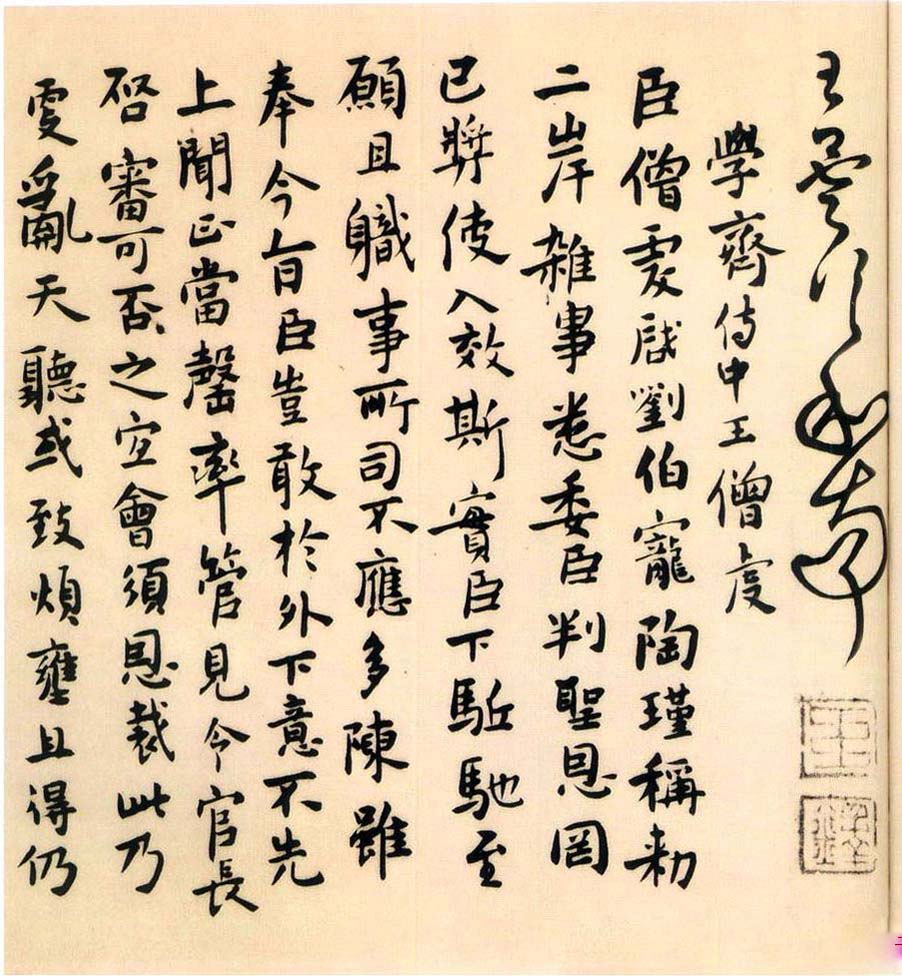 學齊侍中王僧虔
臣僧虔啟劉伯寵陶瑾稱勑
二岸雜事悉委臣判聖恩罔
已獎使入效斯實臣下駈馳至
願且職事所司不應多陳雖
奉今旨臣豈敢於外下意不先
上聞正當罄率管見令官長
啓審可否之宜會須恩裁此乃
亂天聽或致煩壅且得仍